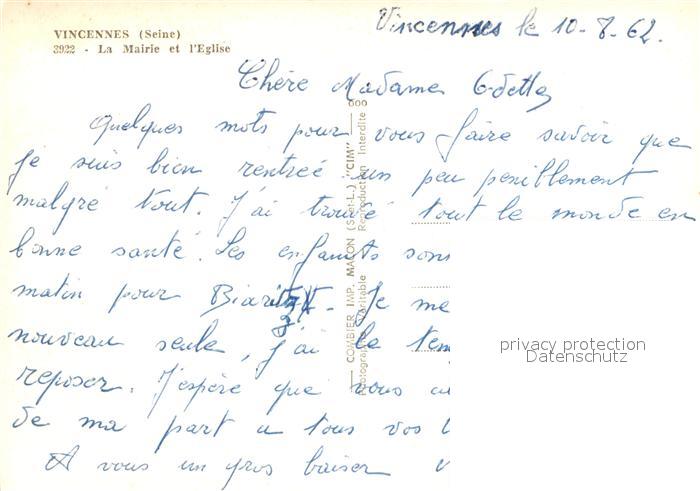 VINCENNES (Seine)
3922 - La Mairie et l'Eglise
Vincennes le 10-8-62.
Chère Madame Odette
Quelques mots pour vous faire savoir que
je suis bien rentrée un peu peniblement
malgré tout. J'ai trouvé tout le monde en
bonne santé. Les enfants sont
matin pour Biarritz. Je me
nouveau seule, j'ai le tem
reposer. J'espère que vous
de ma part a tous vos
A vous un gros baiser
COMBIER IMP. MACON (S.-et-L.) "CIM"
Photographie Véritable Reproduction Interdite
privacy protection
Datenschutz